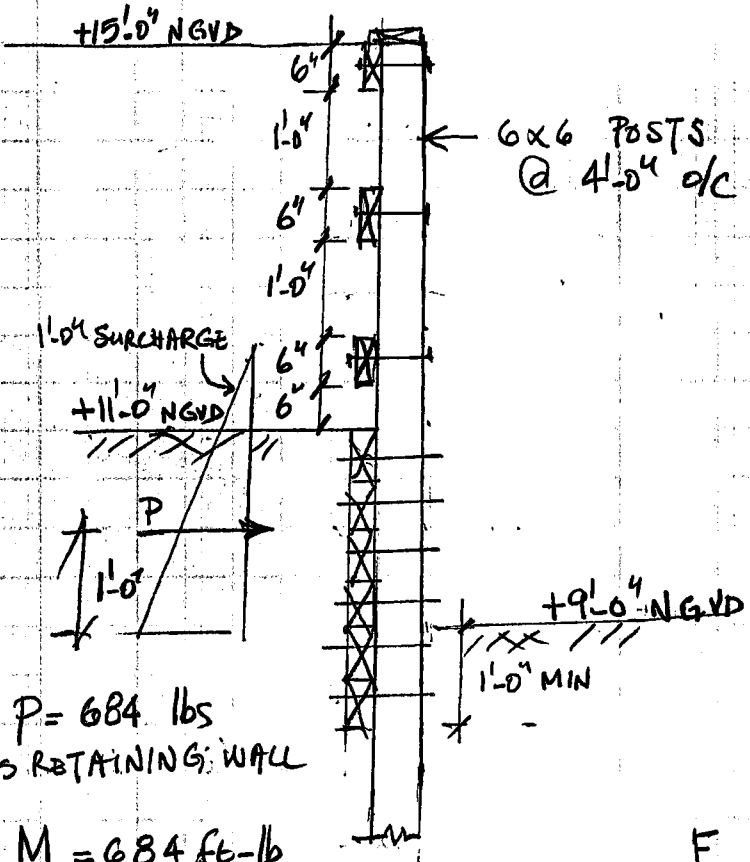 +15'-0" NGVD
6"
1'-0"
6x6 POSTS
@ 4'-0" o/c
6"
1'-0"
1'-0" SURCHARGE
6"
6"
+11'-0" NGVD
P
1'-0"
+9'-0" NGVD
1'-0" MIN
P = 684 lbs
S RETAINING WALL
M = 684 ft-lb
F